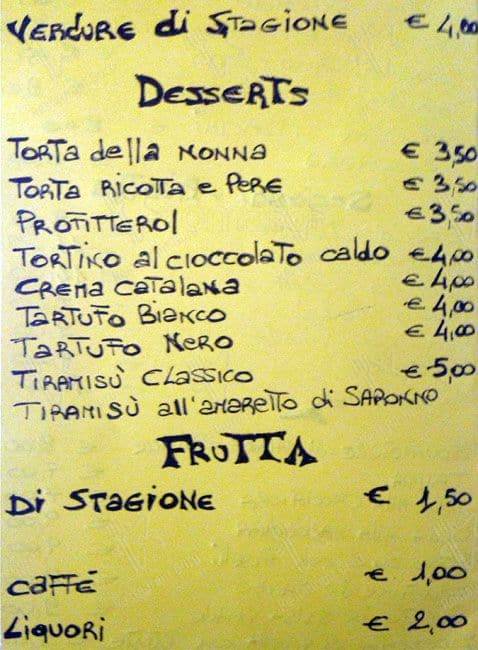 VERDURE di STAGIONE € 4,00
DESSERTS
TORTA della NONNA € 3,50
TORTA RICOTTA e PERE € 3,50
PROfITTEROl € 3,50
TORTINO al CIOCCOLATO CALDO € 4,00
CREMA CATALANA € 4,00
TARTUFO BIANCO € 4,00
TARTUFO NERO € 4,00
TIRAMISÙ CLASSICO € 5,00
TIRAMISÙ all'AMARETTO di SARONNO
FRUTTA
DI STAGIONE € 1,50
CAFFÉ € 1,00
LIQUORI € 2,00